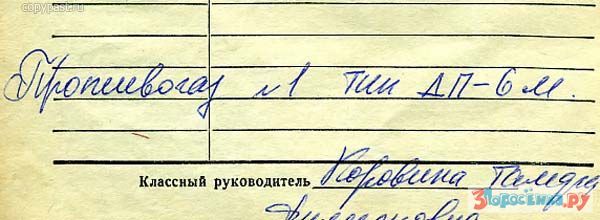 copypast.ru
Противогаз №1 тип ДП-6 м.
Классный руководитель Коровина Тамара
3Поросёнка.ру